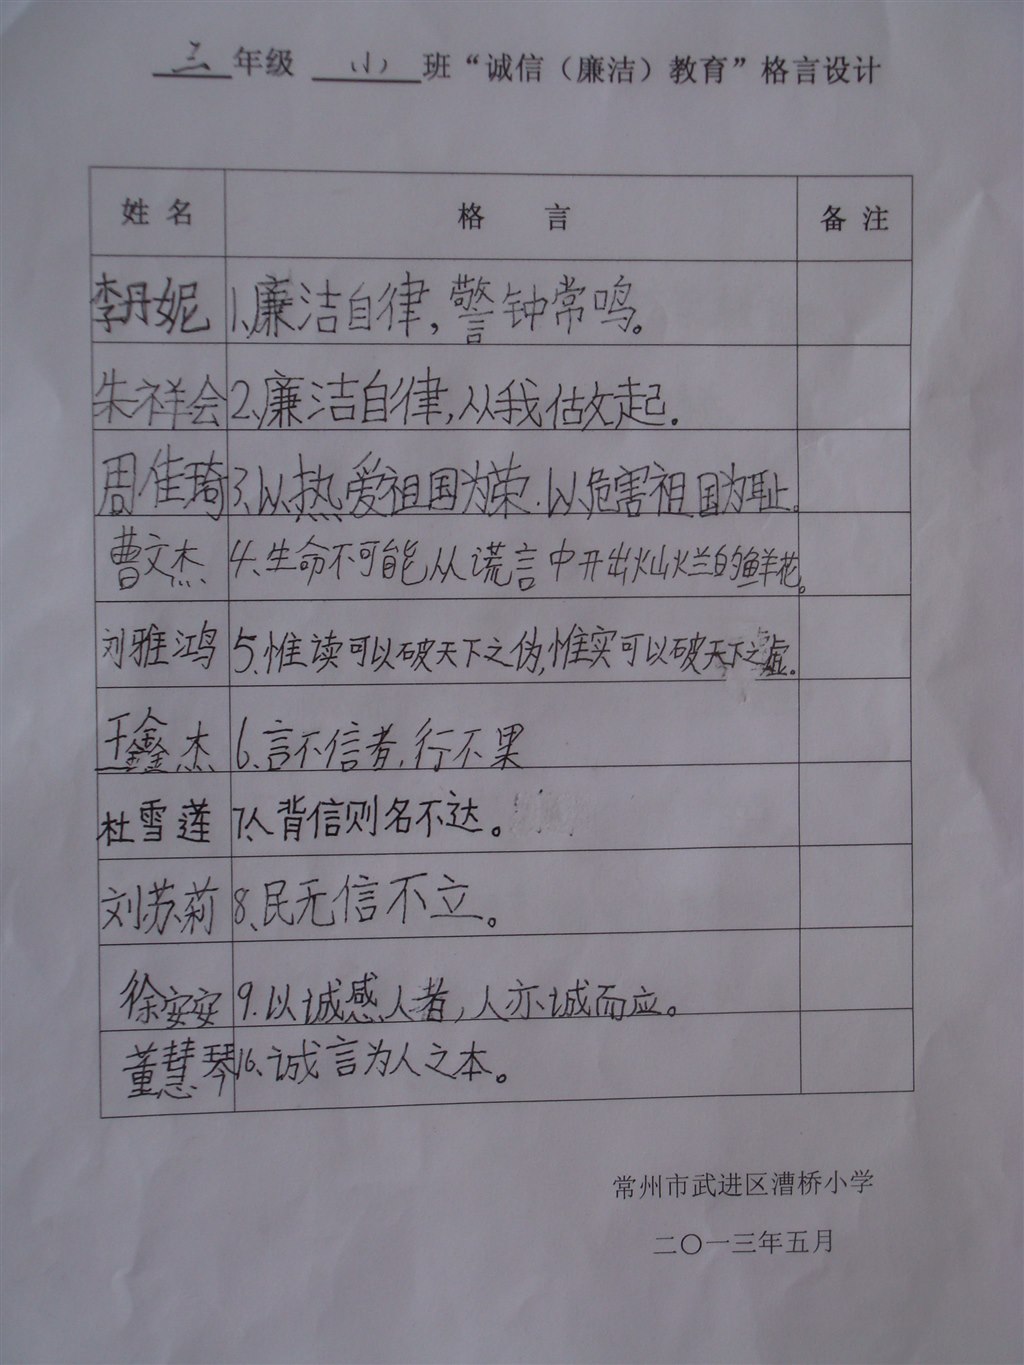 三年级 (1) 班“诚信（廉洁）教育”格言设计
姓名 格言 备注
李丹妮 1、廉洁自律，警钟常鸣。
朱祥会 2、廉洁自律，从我做起。
周佳琦 3、以热爱祖国为荣.以危害祖国为耻。
曹文杰 4、生命不可能从谎言中开出灿烂的鲜花。
刘雅鸿 5、惟读可以破天下之伪，惟实可以破天下之虚。
王鑫杰 6、言不信者，行不果
杜雪莲 7、人背信则名不达。
刘苏莉 8、民无信不立。
徐安安 9.以诚感人者，人亦诚而应。
董慧琴 10、诚言为人之本。
常州市武进区漕桥小学
二〇一三年五月